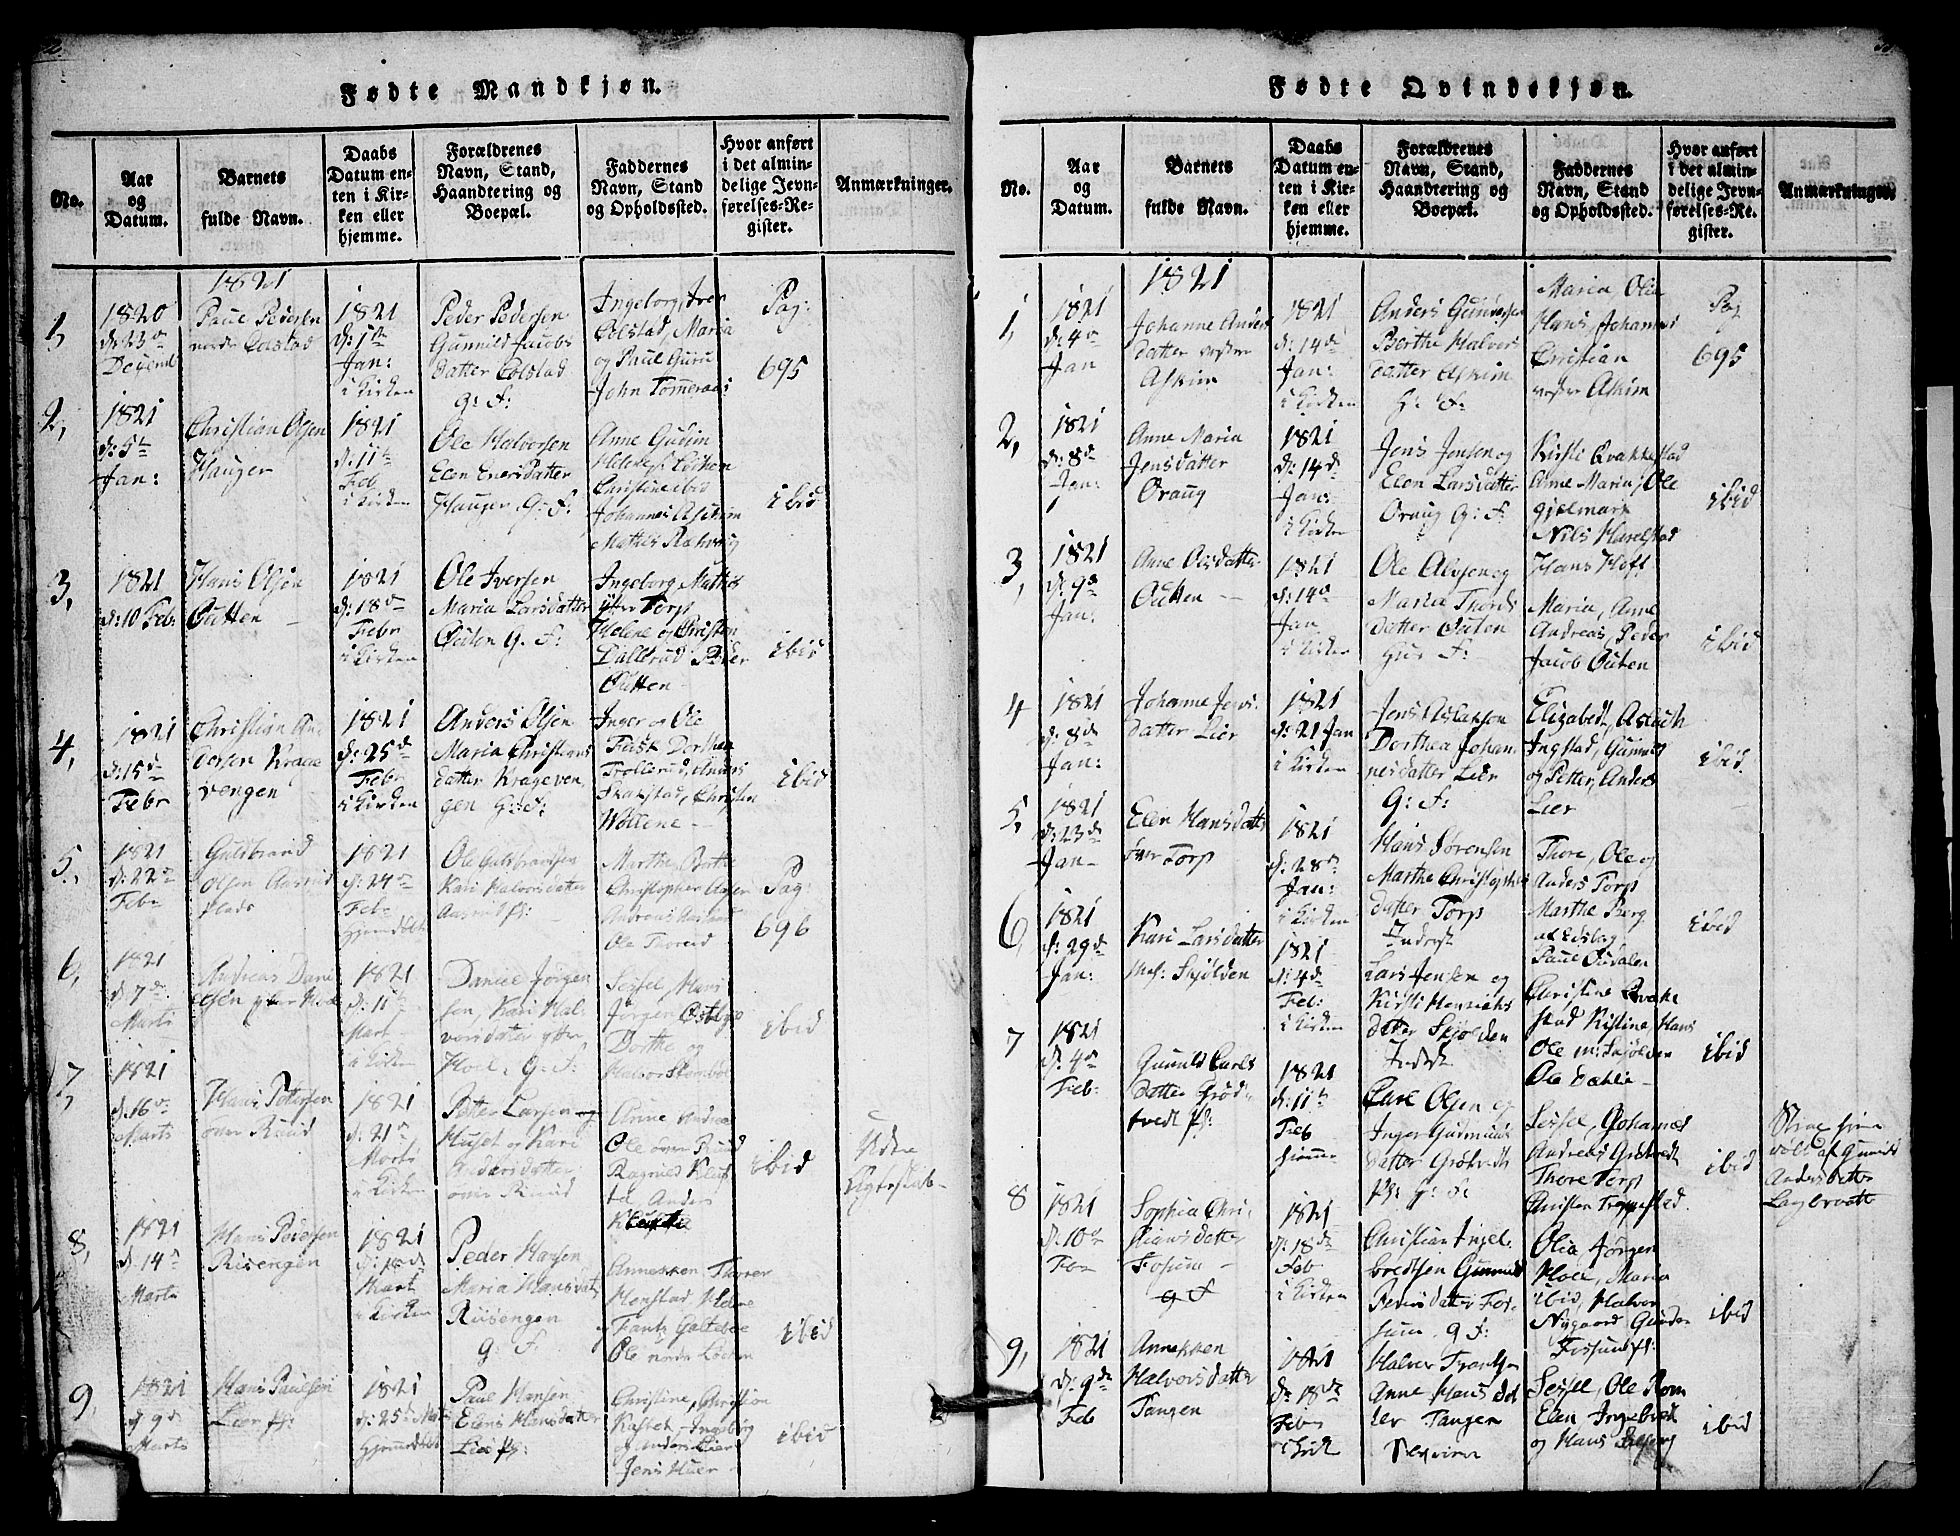 Fødte Mandkjøn.
No.
Aar
og
Datum.
Barnets
fulde Navn.
Daabs
Datum en-
ten i Kir-
ken eller
hjemme.
Forældrenes
Navn, Stand,
Haandtering og
Boepæl.
Faddernes
Navn, Stand
og Opholdssted.
Hvor anført
i det almin-
delige Jevn-
førelses-Re-
gister.
Anmærkninger.
1821
1,
1820
d: 23de
Decemb
Paul Pedersen
nordre Colstad
1821
d: 1ste
Jan:
i Kirken
Peder Pedersen
Gunnild Jacobs
datter Colstad
G: F:
Ingeborg, Iver
Colstad, Maria
og Paul Guru
John Tømmeraas
Pag:
695
2,
1821
d: 5te
Jan:
Christian Olsen
Hauger
1821
d: 11te
Feb
i Kirken
Ole Halvorsen
Elen Enersdatter
Hauger G: F:
Anne Gudim
Christine ibid
Johannes Askim
ibid
3,
1821
d: 10 Feb:
Hans Olsen
Outten
1821
d: 18de
Febr
i Kirken
Ole Iversen
Maria Larsdatter
Outen G: F:
Ingeborg, Mathis
ytter Torp
Helene og Christen
Dallerud Peder
Outten
ibid
4,
1821
d: 15de
Febr
Christian An-
dersen Krage
vengen
1821
d: 25de
Febr
i Kirken
Anders Olsen
Maria Christians
datter Krageven
gen G: F:
Inger og Ole
Fusk Dorthea
Trollerud, Anders
Frakstad, Christen
Wollene
ibid
5.,
1821
d: 22de
Feb:
Guldbrand
Olsen Aasrud
plads
1821
d: 24de
Feb:
hjemdøbt
Ole Guldbrandsen
Kari Halvorsdatter
Aasrud pl:
Marthe, Berthe
Christopher Aaser
Andreas Aasrud
Ole Thorud
Pag:
696
6,
1821
d: 7de
Marti
Andreas Dani
elsen ytter Hoel
1821
d: 11te
Mart
i Kirken
Daniel Jørgen
sen, Kari Hal-
vorsdatter ytter
Hoel, G: F:
Sessel, Mari
Jørgen Østbye
Dorthe og
Halvor Stombol
ibid
7,
1821
d: 16de
Marts
Hans Pettersen
over Ruud
1821
d: 21de
Marts
i Kirken
Petter Larsen og
Huset og Kari
Andersdatter
over Ruud
Anne Andrea
Ole over Ruud
Ragnild Kleuf-
ta Anders
Kleufta
ibid
Uden
Ægteskab
8,
1821
d: 14de
Marts
Hans Pedersen
Risengen
1821
d: 18de
Mart
i Kirken
Peder Hansen
Maria Hansdat
Riisengen
G: F:
Annekken Thorer
Henstad, Helene
Frantz Galtebøe
Ole nordre Løken
ibid
9,
1821
d 9de
Marts
Hans Paulsen
Lier pl:
1821
d: 25de Marts
hjemmedøbt
Paul Hansen
Eleni Hansdatter
Lier pl:
Christine, Christian
Kastet, Ingeborg
og Anders Lier
Jens Huer
ibid
Fødte Qvindekjøn.
No.
Aar
og
Datum.
Barnets
fulde Navn.
Daabs
Datum en-
ten i Kir-
ken eller
hjemme.
Forældrenes
Navn, Stand,
Haandtering og
Boepæl.
Faddernes
Navn, Stand
og Opholdssted.
Hvor anført
i det almin-
delige Jevn-
førelses-Re-
gister.
Anmærkninger.
1821
1,
1821
d: 4de
Jan
Johanne Anders
datter vestre
Askim
1821
d: 14de
Jan:
i Kirken
Anders Gunersen
Berthe Halvors
datter Askim
G: F:
Maria, Olia
Hans, Johannes
Christian
vestre Askim
Pag
695
2,
1821
d: 8de
Jan:
Anne Maria
Jensdatter
Oraug
1821
d: 14de
Jan:
i Kirken
Jens Jensen og
Elen Larsdatter
Oraug G: F:
Kirsti Qvakkestad
Anne Maria, Ole
Gjelmark
Nils Havelstad
ibid
3,
1821
d: 9de
Jan:
Anne Olsdatter
Outten
1821
d: 14de
Jan
i Kirken
Ole Olsen og
Maria Thords
datter Outen
Huus F:
Hans Hoff
Maria, Anne
Andreas, Peder
Jacob Outen
ibid
4
1821
d: 8de
Jan:
Johanne Jens-
datter Lier
1821
d: 21 Jan
i Kirken
Jens Aslaksen
Dorthea Johan
nesdatter Lier
G: F:
Elizabeth, Aslach
Ingstad, Gunner
og Petter, Anders
Lier
ibid.
5,
1821
d: 23de
Jan
Elen Hansdatter
over Torp
1821
d: 28de
Jan:
i Kirken
Hans Sørensen
Marthe Christophers
datter Torp
Inderst
Thore, Ole og
Anders Torp
Marthe Berg
af Edsberg
Paul Oudalen
ibid
6,
1821
d: 29de
Jan:
Kari Larsdatter
Mel: Skjolden
1821
d: 4de
Feb:
i Kirken
Lars Jensen og
Kirsti Henrichs
datter Skjolden
Inderst
Christine Qvake
stad Kistine, Hans
Ole m: Skjolden
Ole Dahle
ibid
7
1821
d: 4de
Feb:
Gunild Carls
datter Grød-
tvedt pl:
1821
d: 11te
Feb
hjemme
Carl Olsen og
Inger Gudmunds
datter Grøtvedt
Pl: G: F:
Sessel, Johannes
Andreas Grøtvedt
Thore Torp
Christen Trømstad
ibid
Andersdatter
8
1821
d: 10de
Feb
Sophia Chri-
stiansdatter
Fosum
G F
1821
d: 18de
Feb
i Kirken
Christian Ingel-
bredtsen Gunnild
Pedersdatter Fos-
sum G F:
Olia, Jørgen
Hoel, Maria
ibid, Halvor
Nygaard Gunder
Fossum pl:
ibid
9,
1821
d: 9de
Feb
Annekken
Halvorsdatter
Tangen
1821
d: 18de
Feb
i Kirk
Halvor Frantsen
Anne Hans dat
ter Tangen
Sessel, Ole Rom
Elen Ingebret
og Hans
ibid